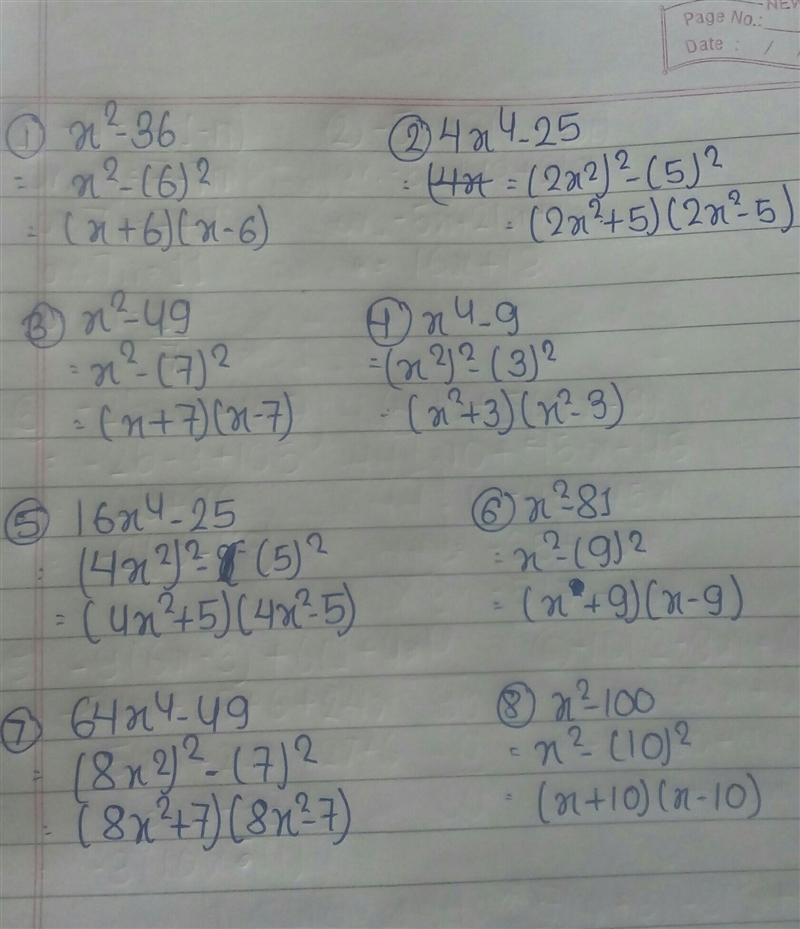 NEW
Page No.:
Date : / /
① x²-36
= x²-(6)²
= (x+6)(x-6)
② 4x⁴-25
= (4x = (2x²)²-(5)²
= (2x²+5)(2x²-5)
③ x²-49
= x²-(7)²
= (x+7)(x-7)
④ x⁴-9
=(x²)²-(3)²
= (x²+3)(x²-3)
⑤ 16x⁴-25
= (4x²)²-(5)²
= (4x²+5)(4x²-5)
⑥ x²-81
= x²-(9)²
= (x+9)(x-9)
⑦ 64x⁴-49
= (8x²)²-(7)²
= (8x²+7)(8x²-7)
⑧ x²-100
= x²-(10)²
= (x+10)(x-10)